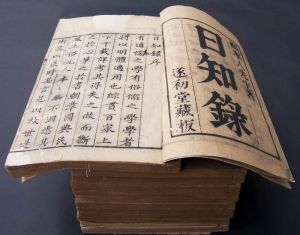 日知錄
遂初堂藏板
日知錄序
有通儒之學有俗儒之學學者
將以明體適用也綜貫百家上
下千載詳考其得失之故而斷
之於心筆之於書朝章國典民
風土俗元元本本無不洞悉其
匡時其言足以救世是